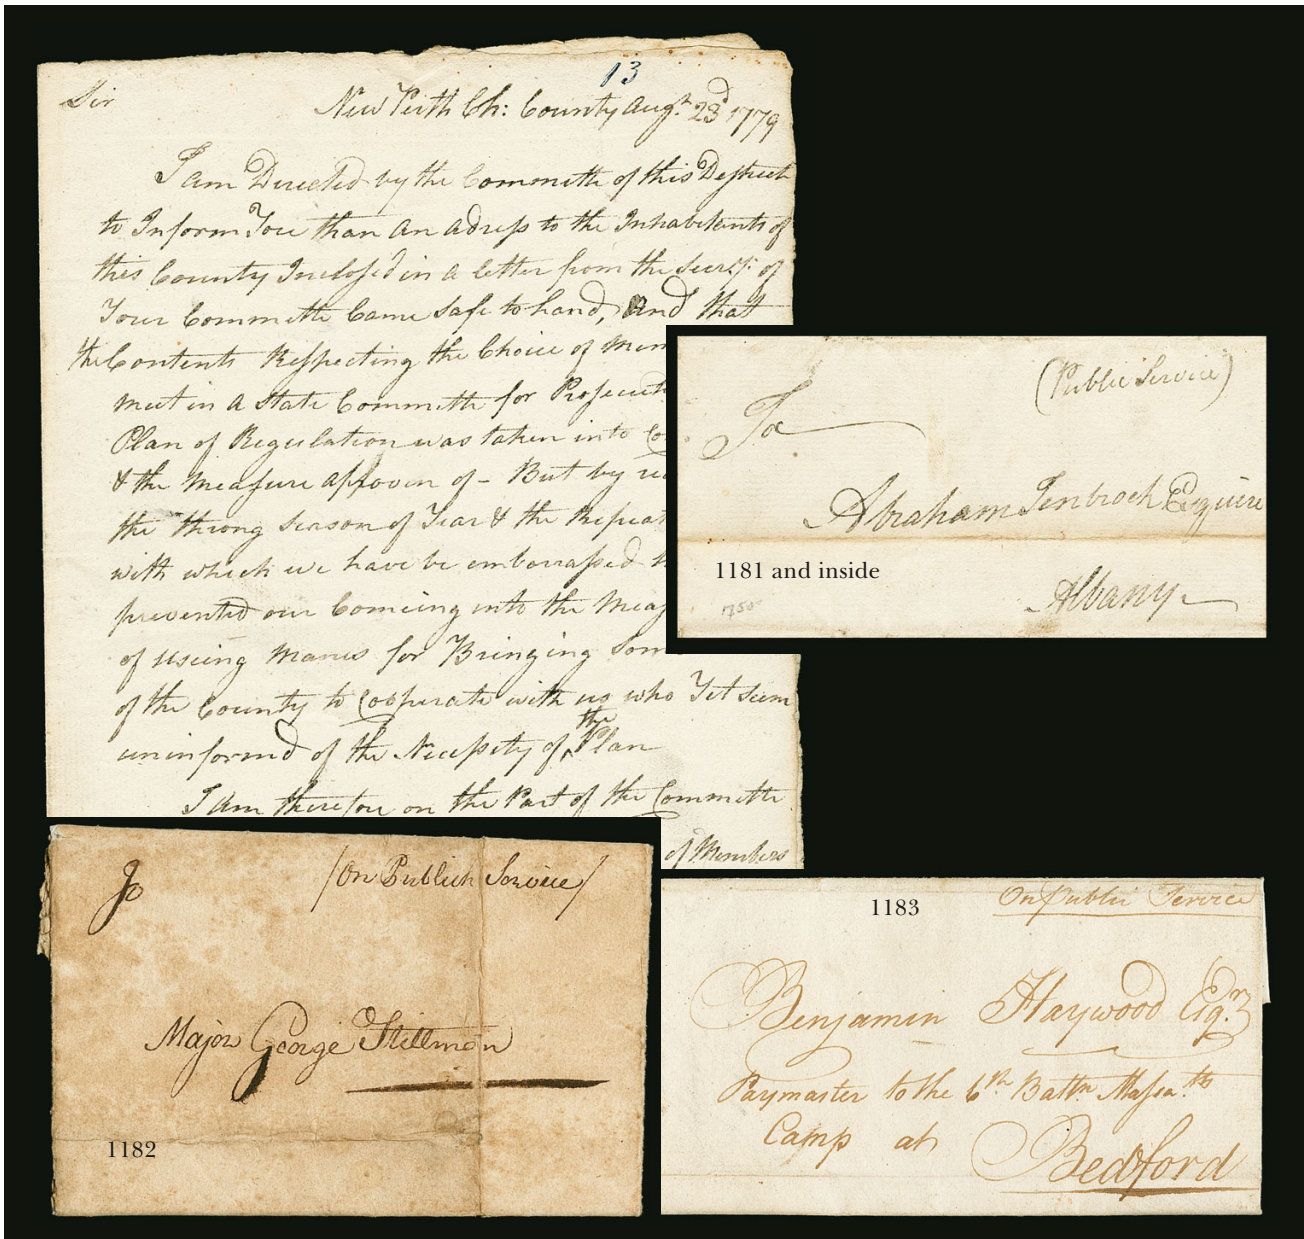 13
Sir
New Perth Ch: County Augt. 23d 1779
I am Directed by the Committe of this Destrect
to Inform You than an adress to the Inhabitents of
this County Inclosed in a letter from the Secrty. of
Your Committe Came Safe to hand, and that
the Contents Respecting the Choice of Mem
meet in a State Committe for Prosecut
Plan of Regulation was taken into Co
& the Measure aproven of - But by re
the throng Season of Year & the Repeat
with which we have be embarrassed
prevented our Comeing into the Meas
of useing Manes for Bringing Som
of the County to Cooperate with us who Yet seem
uninformed of the Necessity of the Plan
I am therefore on the Part of the Committe
of Members
(Public Service)
To
Abraham Tenbroek Esquire
1181 and inside
Albany
1755
To
/On Publick Service/
Major George Stillman
1182
1183
On Public Service
Benjamin Haywood Esqr.
Paymaster to the 6th Battn Massa.tts
Camp at
Bedford